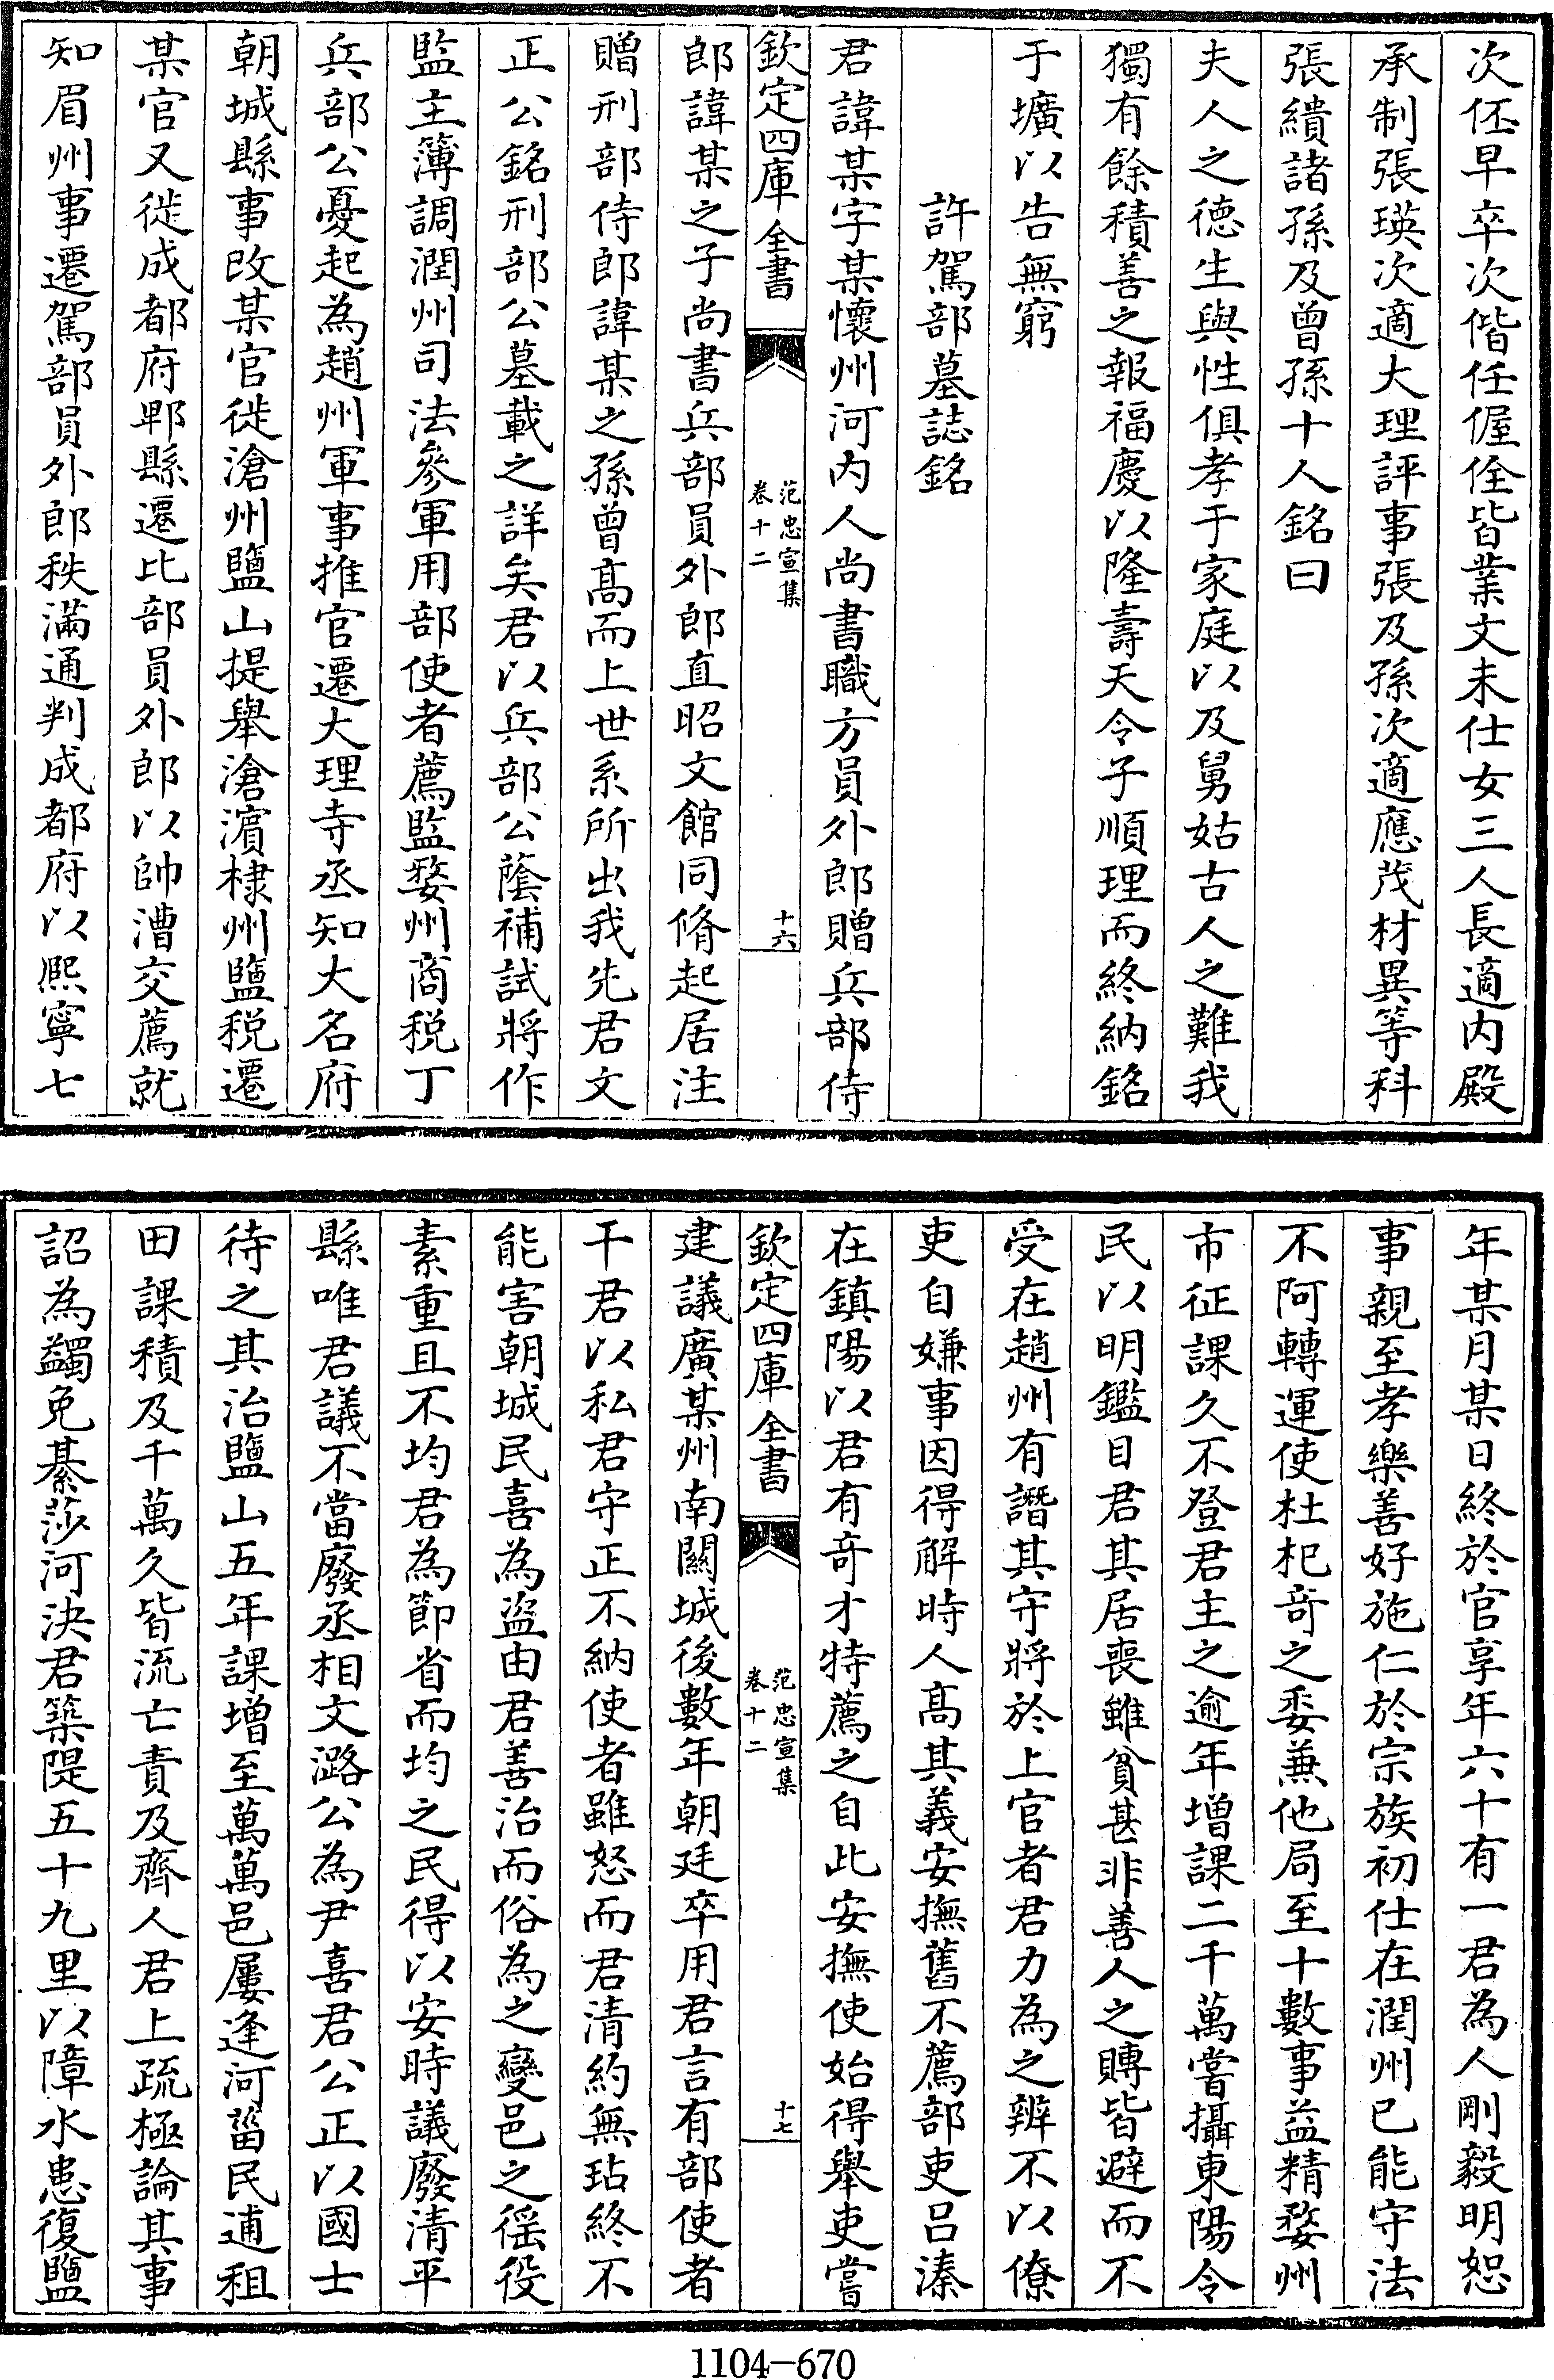 次伾早卒次偕任偓佺皆業文未仕女三人長適内殿
承制張瑛次適大理評事張及孫次適應茂材異等科
張繢諸孫及曾孫十人銘曰
夫人之德生與性俱孝于家庭以及舅姑古人之難我
獨有餘積善之報福慶以隆壽天令子順理而終納銘
于壙以告無窮
許駕部墓誌銘
君諱某字某懷州河内人尚書職方員外郎贈兵部侍
欽定四庫全書
范忠宣集
卷十二
十六
郎諱某之子尚書兵部員外郎直昭文館同脩起居注
贈刑部侍郎諱某之孫曾髙而上世系所出我先君文
正公銘刑部公墓載之詳矣君以兵部公蔭補試將作
監主簿調潤州司法參軍用部使者薦監婺州商税丁
兵部公憂起為趙州軍事推官遷大理寺丞知大名府
朝城縣事改某官徙滄州鹽山提舉滄濵棣州鹽税遷
某官又徙成都府郫縣遷比部員外郎以帥漕交薦就
知眉州事遷駕部員外郎秩滿通判成都府以熈寧七
年某月某日終於官享年六十有一君為人剛毅明恕
事親至孝樂善好施仁於宗族初仕在潤州已能守法
不阿轉運使杜杞竒之委兼他局至十數事益精婺州
市征課久不登君主之逾年增課二千萬嘗攝東陽令
民以明鑑目君其居喪雖貧甚非善人之賻皆避而不
受在趙州有譖其守將於上官者君力為之辨不以僚
吏自嫌事因得解時人髙其義安撫舊不薦部吏吕溱
在鎮陽以君有竒才特薦之自此安撫使始得舉吏嘗
欽定四庫全書
范忠宣集
卷十二
十七
建議廣某州南關城後數年朝廷卒用君言有部使者
干君以私君守正不納使者雖怒而君清約無玷終不
能害朝城民喜為盜由君善治而俗為之變邑之徭役
素重且不均君為節省而均之民得以安時議廢清平
縣唯君議不當廢丞相文潞公為尹喜君公正以國士
待之其治鹽山五年課增至萬萬邑屢逢河菑民逋租
田課積及千萬久皆流亡責及齊人君上疏極論其事
詔為蠲免綦莎河決君築隄五十九里以障水患復鹽
1104-670